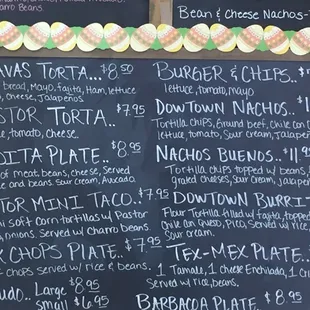 Charro Beans
Bean & Cheese Nachos-
TORTA.. $8.50
bread, Mayo, fajita, Ham, lettuce
, cheese, Jalapeños
TORTA.. $7.95
, tomato, cheese
PLATE.. $8.95
of meat, beans, cheese, Served
and beans. Sour cream, Avocado
MINI TACO.. $7.95
soft corn tortillas w/ Pastor
onions. Served w/ charro beans
CHOPS PLATE.. $7.95
chops served w/ rice & beans.
Large $8.95
Small $6.95
BURGER & CHIPS..
lettuce, tomato, mayo
DOWTOWN NACHOS.. $1
Tortilla chips, Ground beef, Chile con
lettuce, tomato, Sour cream, Jalapeño
NACHOS BUENOS.. $11.
Tortilla chips topped w/ beans,
grated cheeses, Sour cream, Jalapeños
DOWTOWN BURRI
Flour Tortilla filled w/ fajita, topped
Chile con Queso, Pico, Served w/ rice
Sour cream.
TEX-MEX PLATE..
1 Tamale, 1 cheese Enchilada, 1 Cri
Served w/ rice, beans.
BARBACOA PLATE $8.95